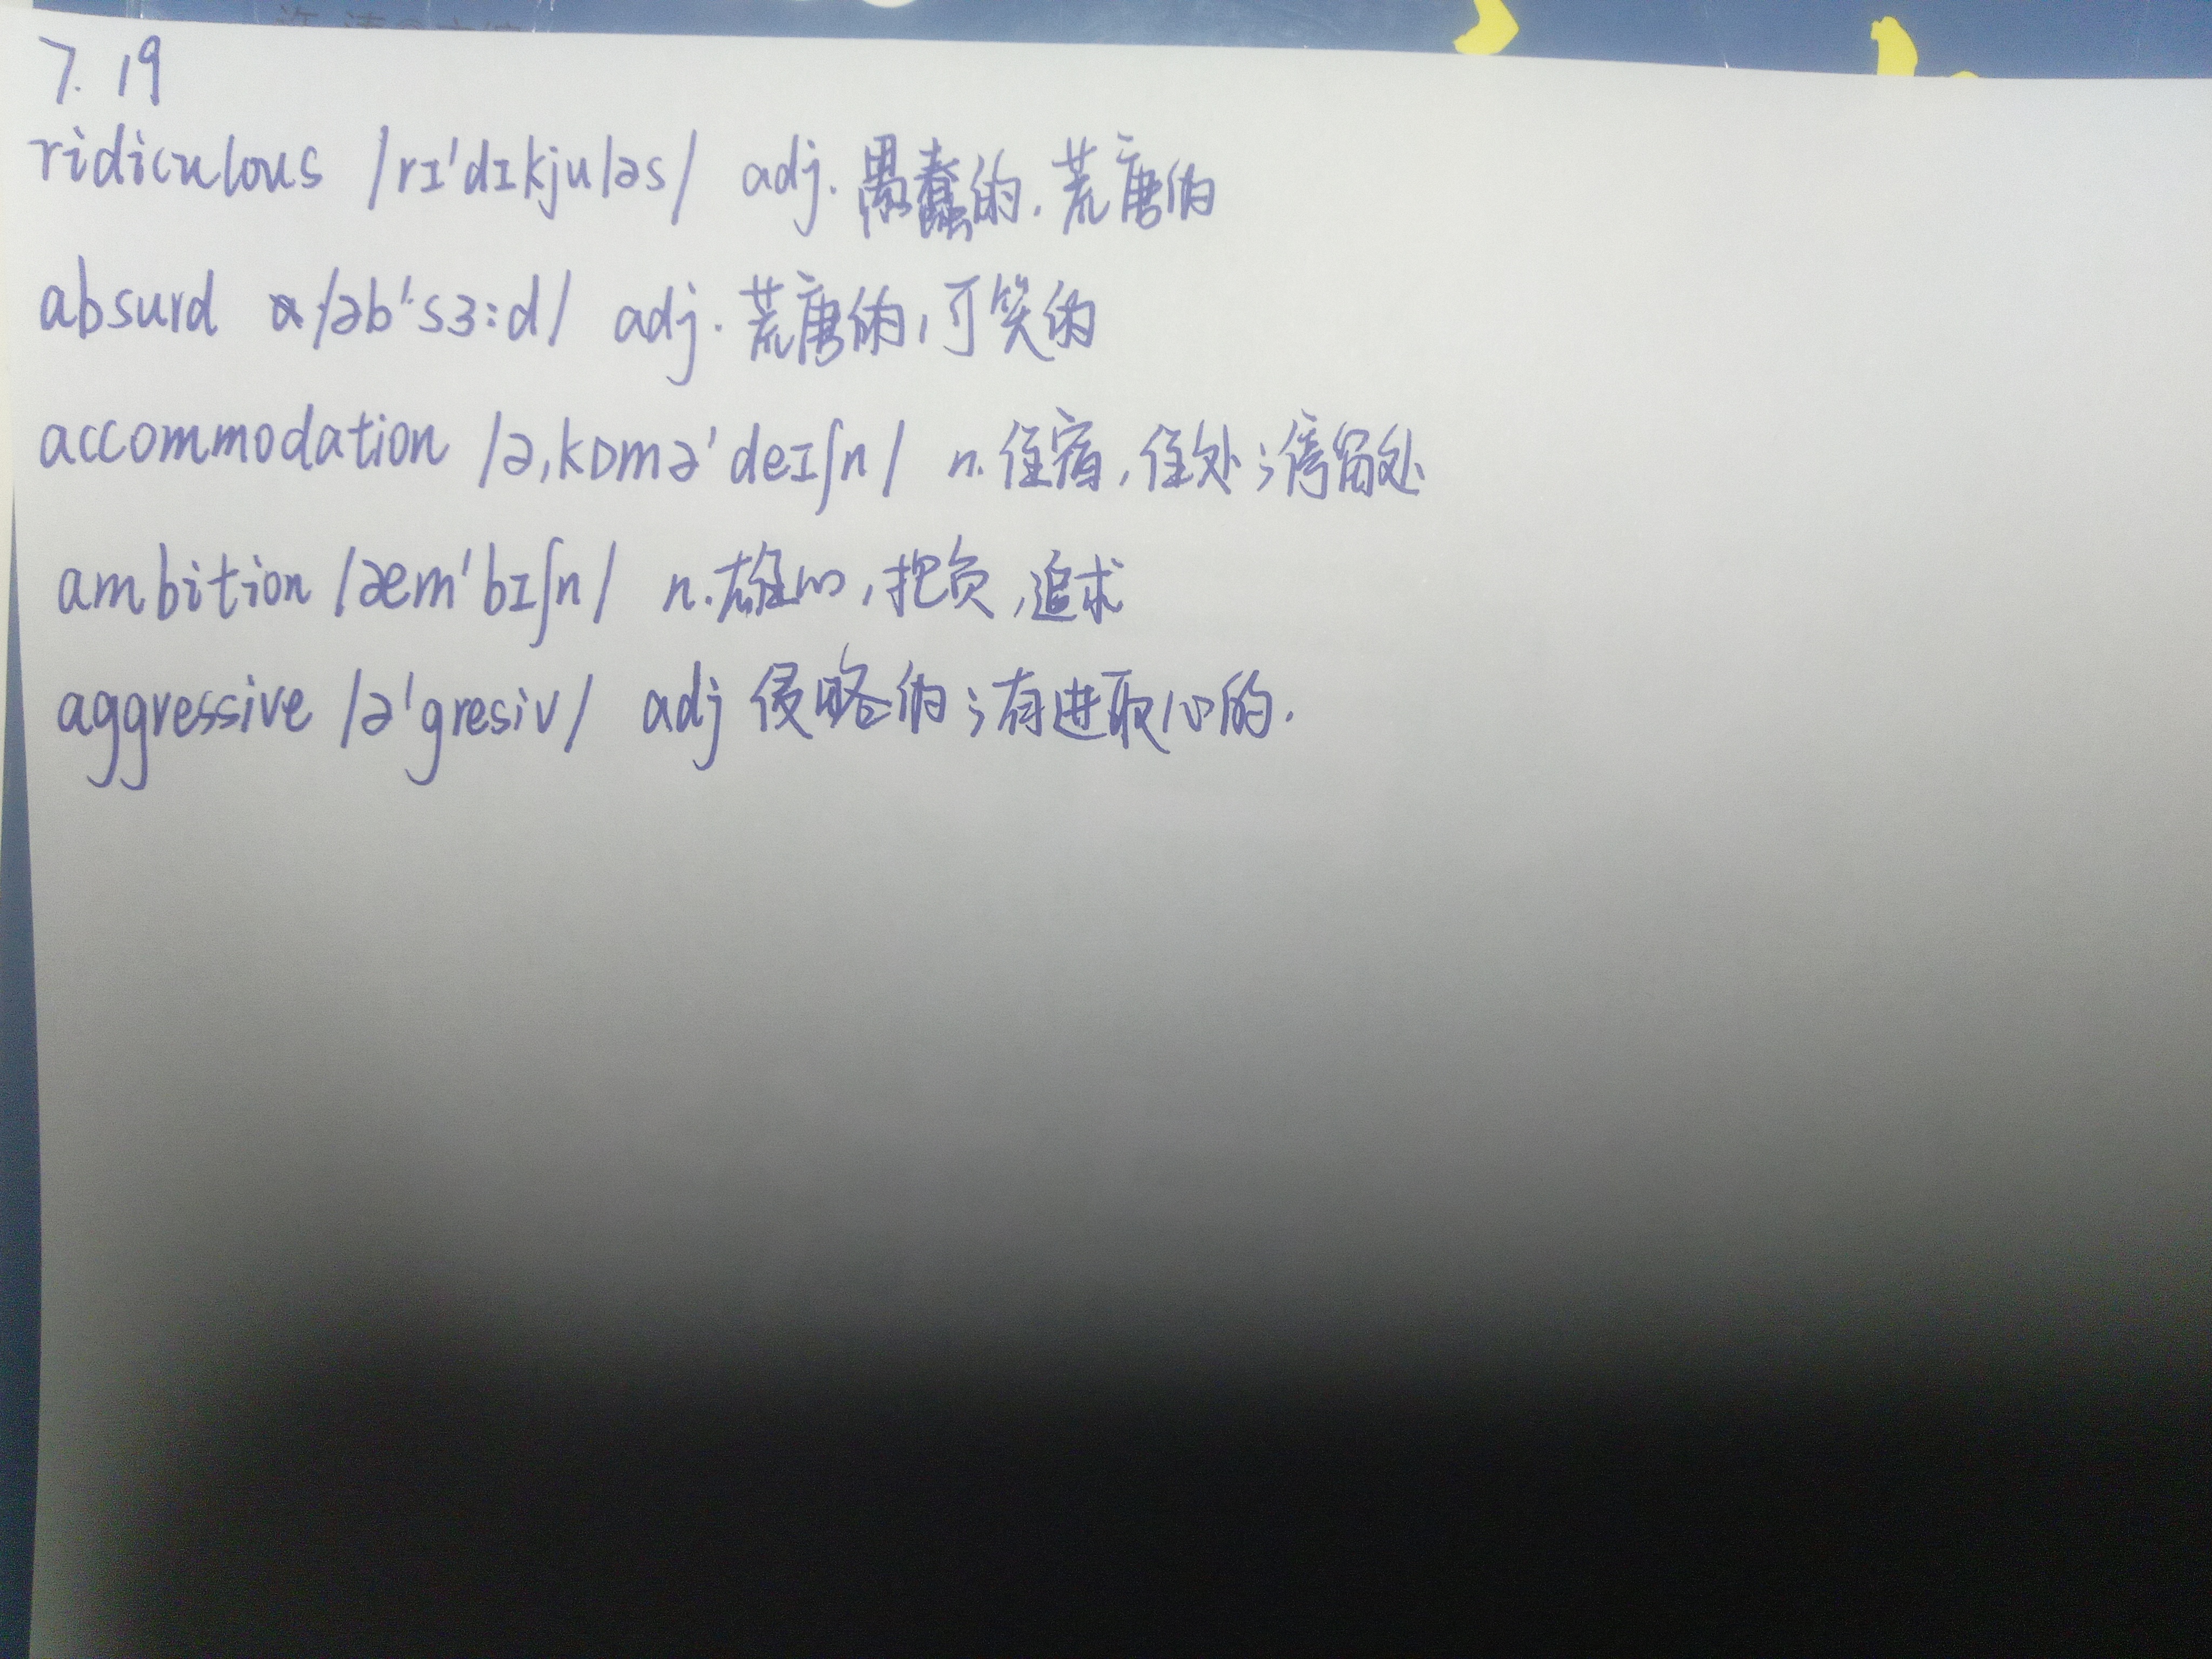 7.19
ridiculous /rɪ'dɪkjuləs/ adj. 愚蠢的.荒唐的
absurd /əb'sɜ:d/ adj. 荒唐的,可笑的
accommodation /ə,kɒmə'deɪʃn/ n. 住宿,住处;停留处
ambition /æm'bɪʃn/ n.雄心,抱负,追求
aggressive /ə'gresiv/ adj 侵略的;有进取心的.